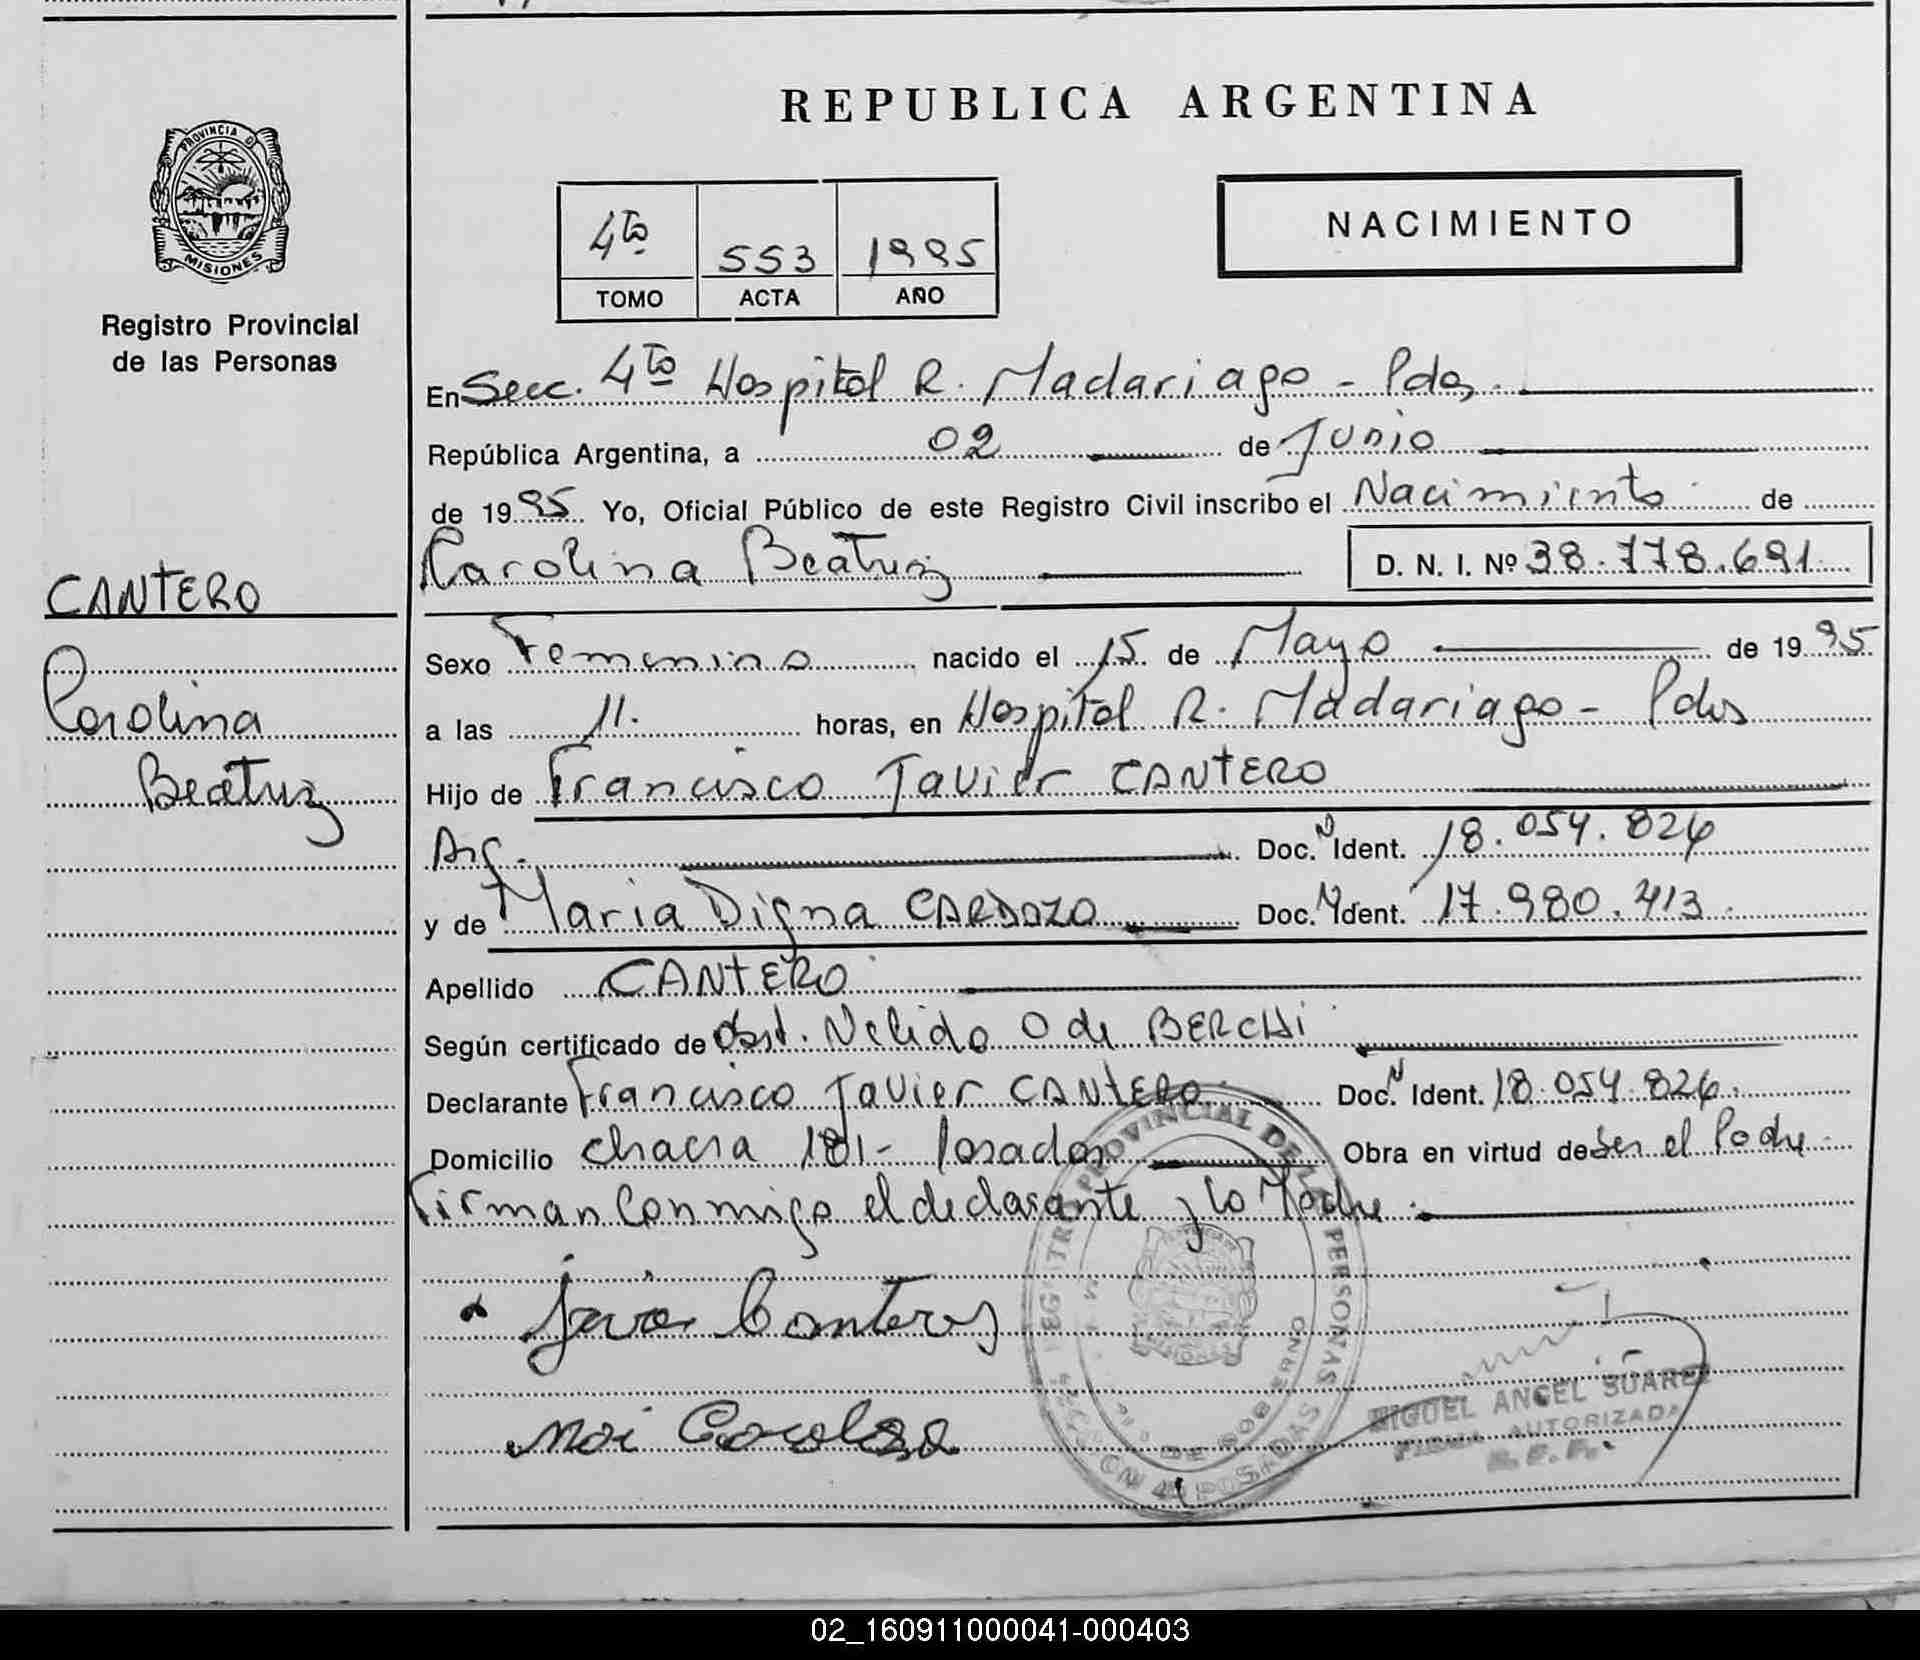 REPUBLICA ARGENTINA
PROVINCIA DE
MISIONES
Registro Provincial
de las Personas
4to 553 1995
TOMO ACTA AÑO
NACIMIENTO
En Secc. 4to Hospital R. Madariaga - Pdas
República Argentina, a 02 de Junio
de 1995 Yo, Oficial Público de este Registro Civil inscribo el Nacimiento de
Carolina Beatriz D. N. I. Nº 38.778.691
CANTERO
Carolina
Beatriz
Sexo Femenino nacido el 15 de Mayo de 1995
a las 11. horas, en Hospital R. Madariaga - Pdas
Hijo de Francisco Javier CANTERO
Arg. Doc. N Ident. 18.054.826
y de Maria Digna CARDOZO Doc. N Ident. 17.980.413
Apellido CANTERO
Según certificado de Obst. Nelida O de BERCHI
Declarante Francisco Javier CANTERO Doc. N Ident. 18.054.826
Domicilio chacra 181 - Posadas Obra en virtud de Ser el Padre
Firman Conmigo el declarante y la Madre
Javier Canteros
PROVINCIAL DE LAS PERSONAS
POSADAS
MIGUEL ANGEL SUAREZ
FIRMA AUTORIZADA
R. P. P.
02_160911000041-000403